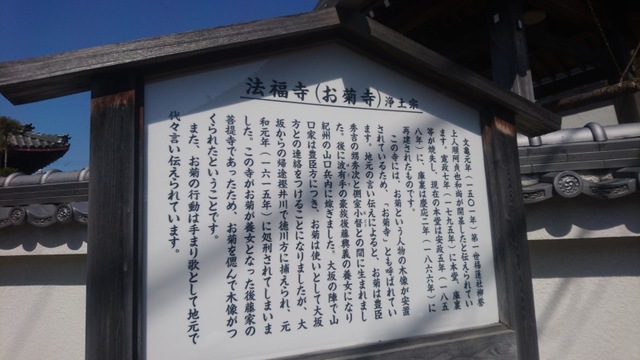 法福寺(お菊寺)浄土宗
文亀元年(一五〇一年)第一世
上人順阿貞也和尚が開基したと伝えられてい
ます。寛政七年(一七九五年)に本堂、庫裏
等が焼失し、現在の本堂は安政五年(一八五
八年)に、庫裏は慶応二年(一八六六年)に
再建されたものです。
この寺には、お菊という人物の木像が安置
されているため、「お菊寺」とも呼ばれてい
ます。地元の言い伝えによると、お菊は豊臣
秀吉の甥秀次と側室小督との間に生まれまし
た。後に波有手の豪族後藤興義の養女になり
紀州の山口兵内に嫁ぎました。大坂の陣で山
口家は豊臣方につき、お菊は使いとして大坂
方との連絡をつけることになりましたが、大
坂からの帰途樫井川で徳川方に捕えられ、元
和元年(一六一五年)に処刑されてしまいま
した。この寺がお菊が養女となった後藤家の
菩提寺であったため、お菊を偲んで木像がつ
くられたということです。
また、お菊の行動は手まり歌として地元で
代々言い伝えられています。